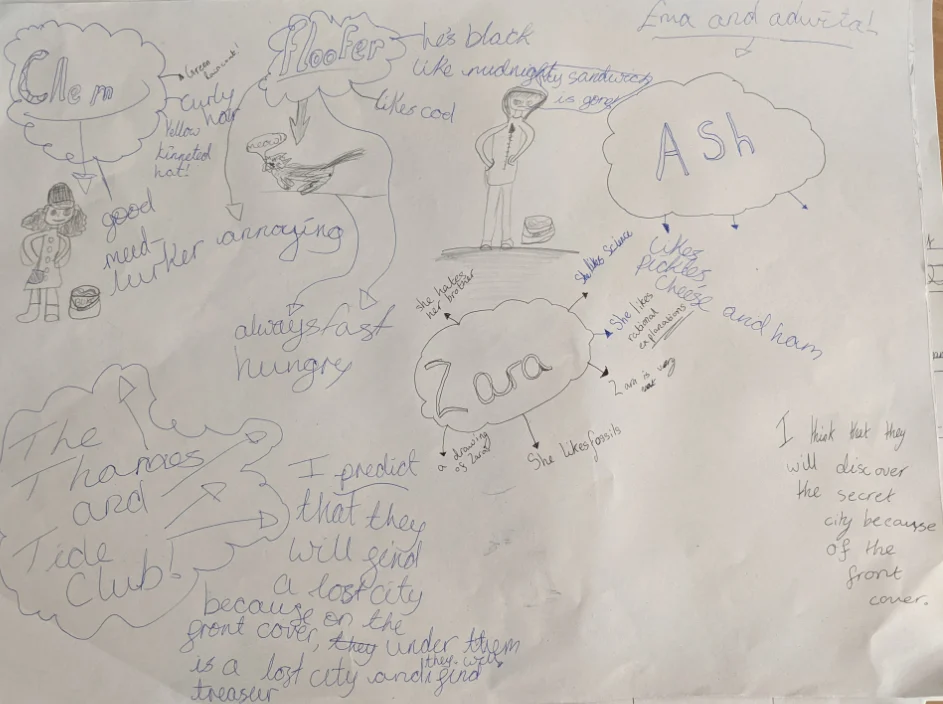 Ema and adwita!
Chem
Green
Curly
hair
Yellow
kinneted
hat!
good
mud-
lurker
floofer
he's black
like midnight
likes cod
meow!
annoying
always fast
hungry
my sandwich
is gone
ASh
likes
pickles,
cheese
and ham
Zara
she hates
her brother
She likes science
She likes
rational
explanations
Zara is very
She likes fossils
a drawing
of Zara
The
Thames
and
Tide
Club!
I predict
that they
will find
a lost city
because on the
front cover, they under them
is a lost city and they will find
treasur
I think that they
will discover
the secret
city because
of the
front
cover.